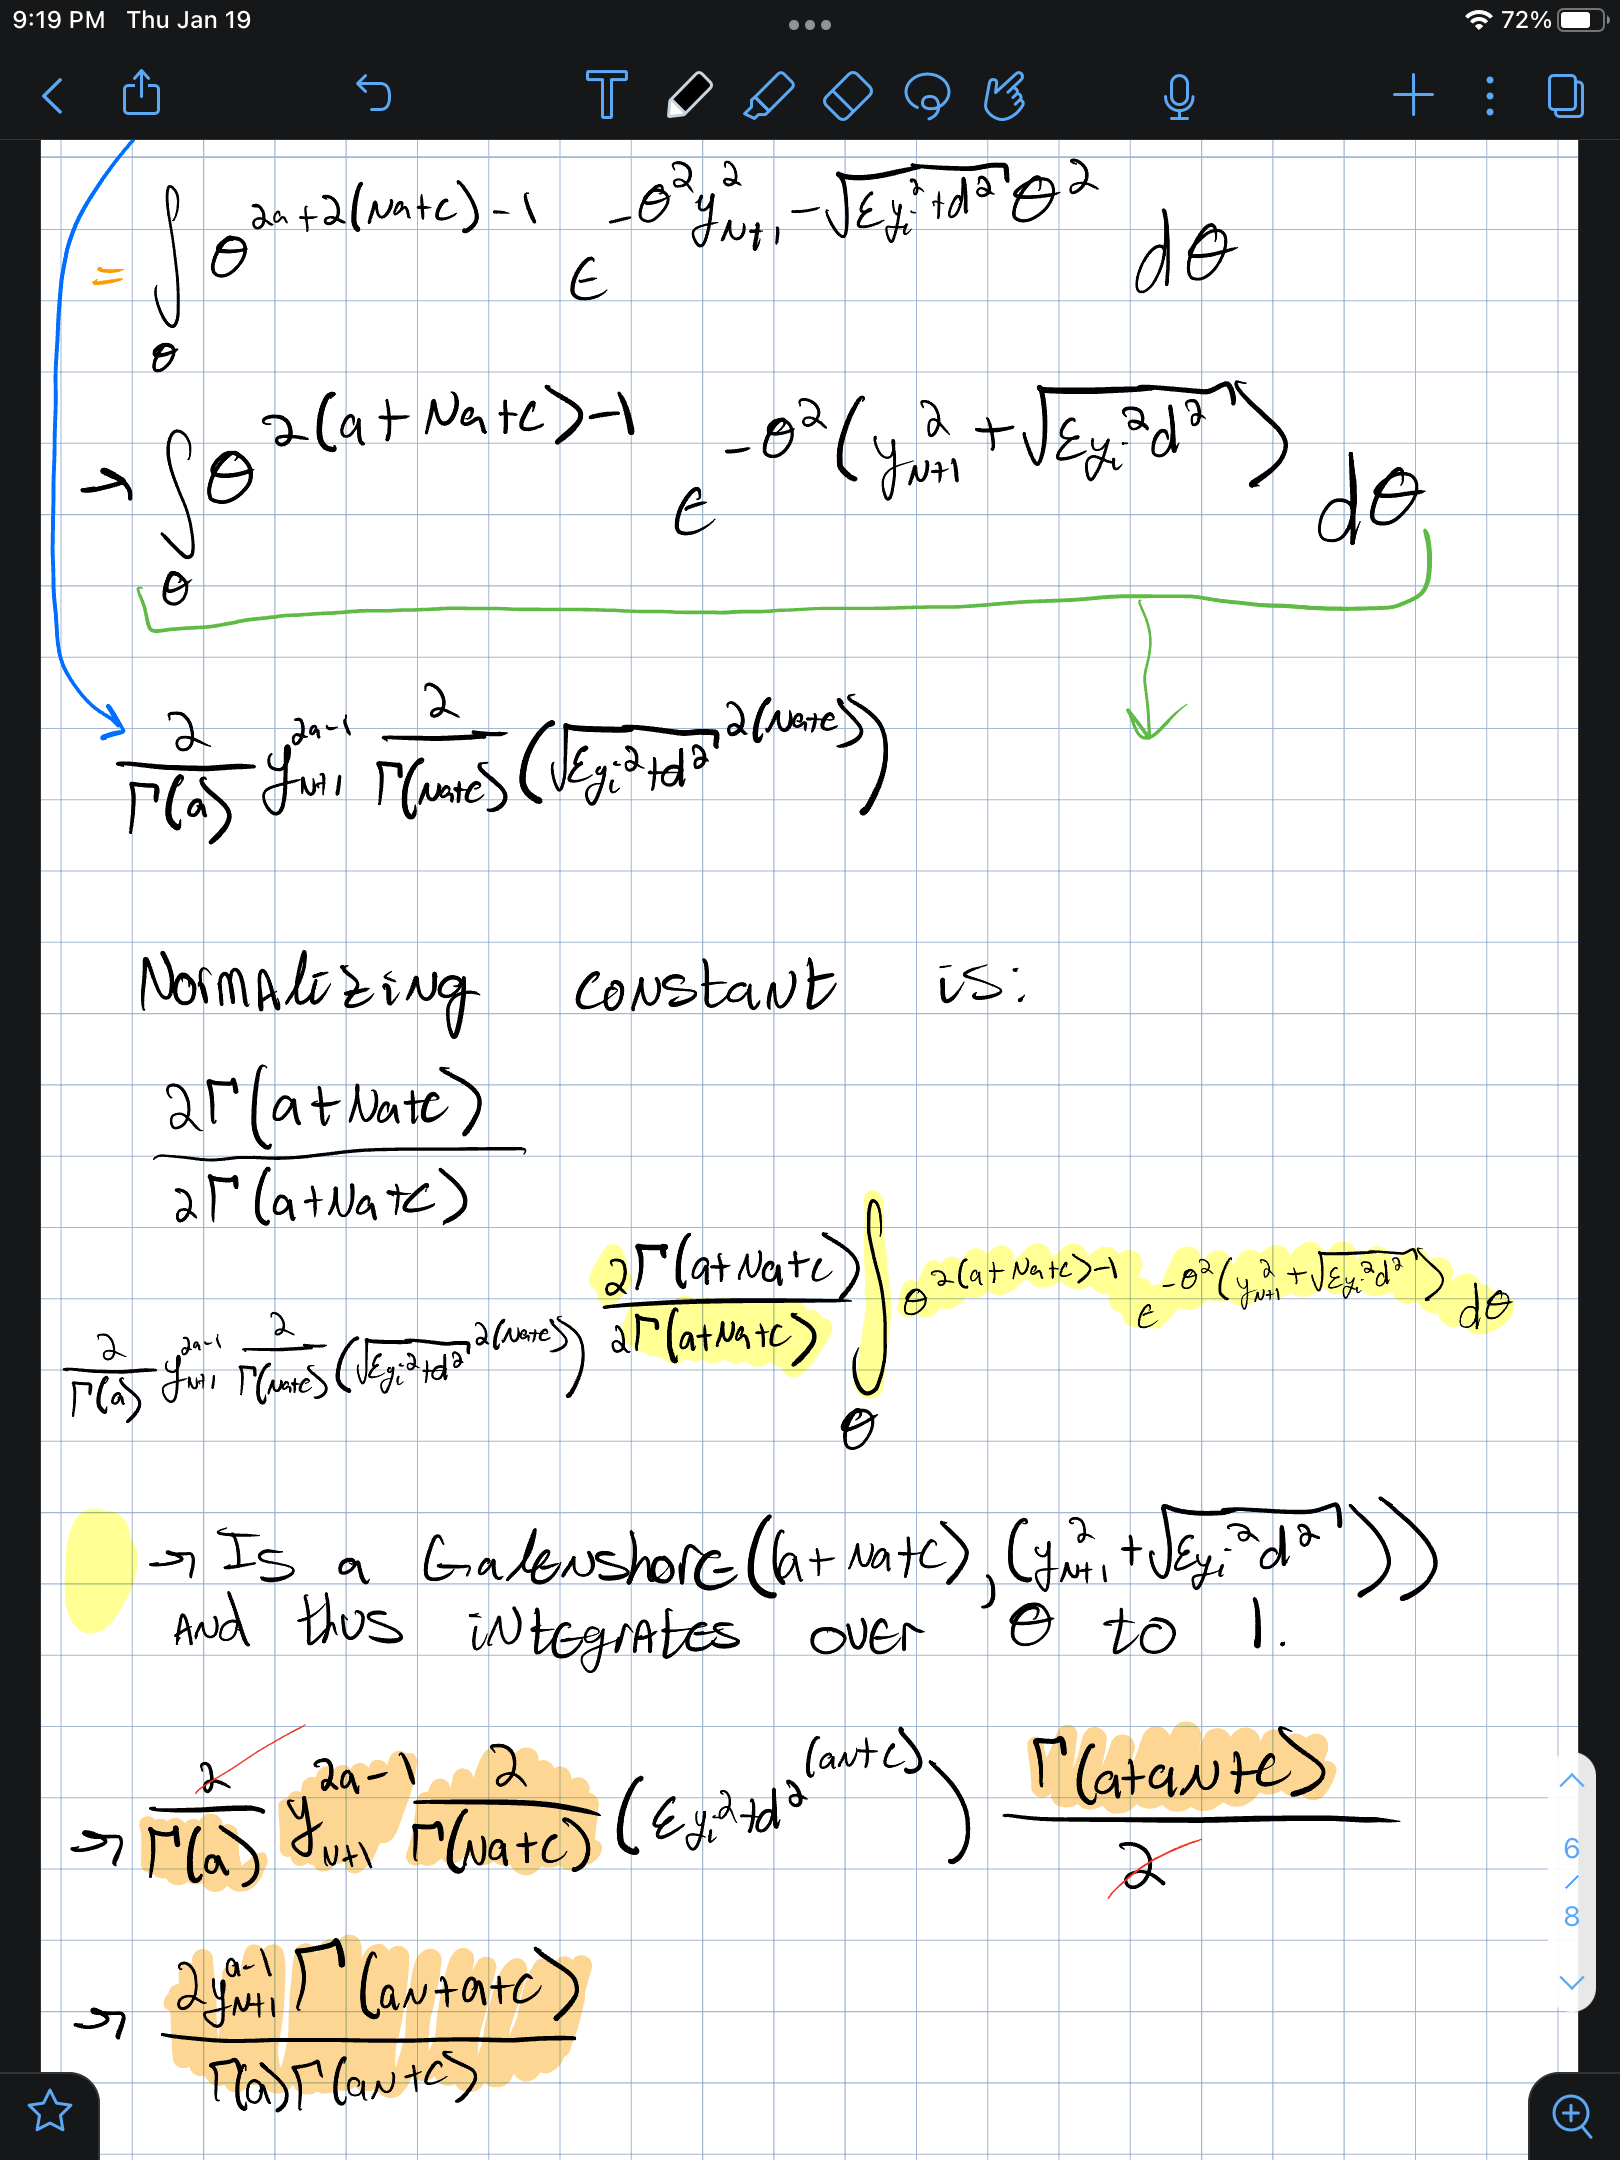 9:19 PM Thu Jan 19 72%
= ∫_θ θ^{2a+2(Na+c)-1} e^{-θ² y²_{N+1} - √(Σy_i²+d²) θ²} dθ
→ ∫_θ θ^{2(a+Na+c)-1} e^{-θ²(y²_{N+1} + √(Σy_i² d²))} dθ
2/Γ(a) y_{N+1}^{2a-1} 2/Γ(Na+c) (√(Σy_i²+d²)^{2(Na+c)})
Normalizing constant is:
2Γ(a+Na+c) / 2Γ(a+Na+c)
2/Γ(a) y_{N+1}^{2a-1} 2/Γ(Na+c) (√(Σy_i²+d²)^{2(Na+c)}) 2Γ(a+Na+c)/2Γ(a+Na+c) ∫_θ θ^{2(a+Na+c)-1} e^{-θ²(y²_{N+1} + √(Σy_i² d²))} dθ
→ Is a Galenshore((a+Na+c), (y²_{N+1} + √(Σy_i² d²)))
And thus integrates over θ to 1.
→ 2/Γ(a) y_{N+1}^{2a-1} 2/Γ(Na+c) (Σy_i²+d²^{(aN+c)}) Γ(a+aN+c)/2
→ 2y_{N+1}^{a-1} Γ(aN+a+c) / Γ(a)Γ(aN+c)
6 / 8